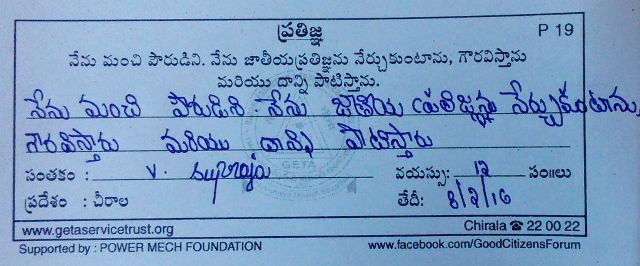 ప్రతిజ్ఞ
P 19
నేను మంచి పౌరుడిని. నేను జాతీయప్రతిజ్ఞను నేర్చుకుంటాను, గౌరవిస్తాను
మరియు దాన్ని పాటిస్తాను.
నేను మంచి పౌరుడిని. నేను జాతీయ ప్రతిజ్ఞను నేర్చుకుంటాను,
గౌరవిస్తాను మరియు దాన్ని పాటిస్తాను
GETA
సంతకం : V. Supraja వయస్సు: 12 సం॥లు
ప్రదేశం : చీరాల తేదీ: 8/2/16
www.getaservicetrust.org Chirala ☎ 22 00 22
Supported by : POWER MECH FOUNDATION www.facebook.com/GoodCitizensForum